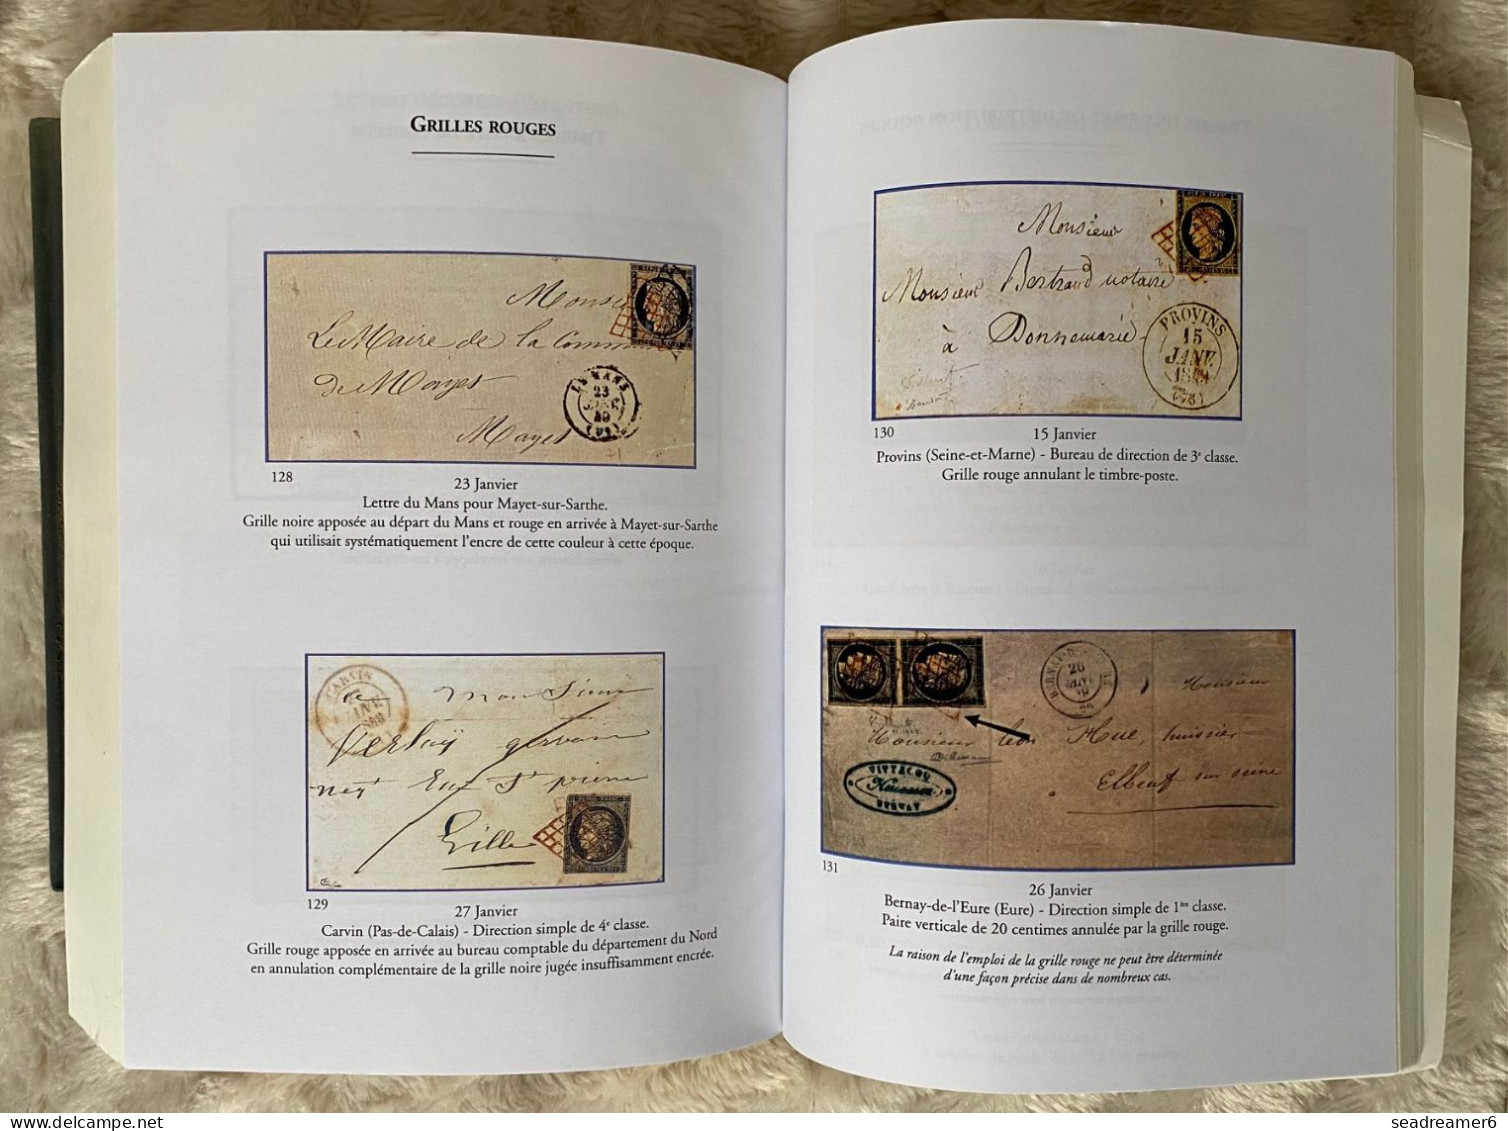 GRILLES ROUGES
Monsieur
Le Maire de la Commune
de Mayet
Mayet
LE MANS
23
JANV.
49
(71)
128
23 Janvier
Lettre du Mans pour Mayet-sur-Sarthe.
Grille noire apposée au départ du Mans et rouge en arrivée à Mayet-sur-Sarthe
qui utilisait systématiquement l'encre de cette couleur à cette époque.
CARVIN
JANV.
a Monsieur
gervais
Lille
129
27 Janvier
Carvin (Pas-de-Calais) - Direction simple de 4e classe.
Grille rouge apposée en arrivée au bureau comptable du département du Nord
en annulation complémentaire de la grille noire jugée insuffisamment encrée.
Monsieur
Monsieur Bertrand notaire
à Donnemarie
PROVINS
15
JANV.
(73)
130
15 Janvier
Provins (Seine-et-Marne) - Bureau de direction de 3e classe.
Grille rouge annulant le timbre-poste.
26
Monsieur
Monsieur Léon Hue, huissier
Elbeuf sur seine
BERNAY
131
26 Janvier
Bernay-de-l'Eure (Eure) - Direction simple de 1ère classe.
Paire verticale de 20 centimes annulée par la grille rouge.
La raison de l'emploi de la grille rouge ne peut être déterminée
d'une façon précise dans de nombreux cas.
seadreamer6